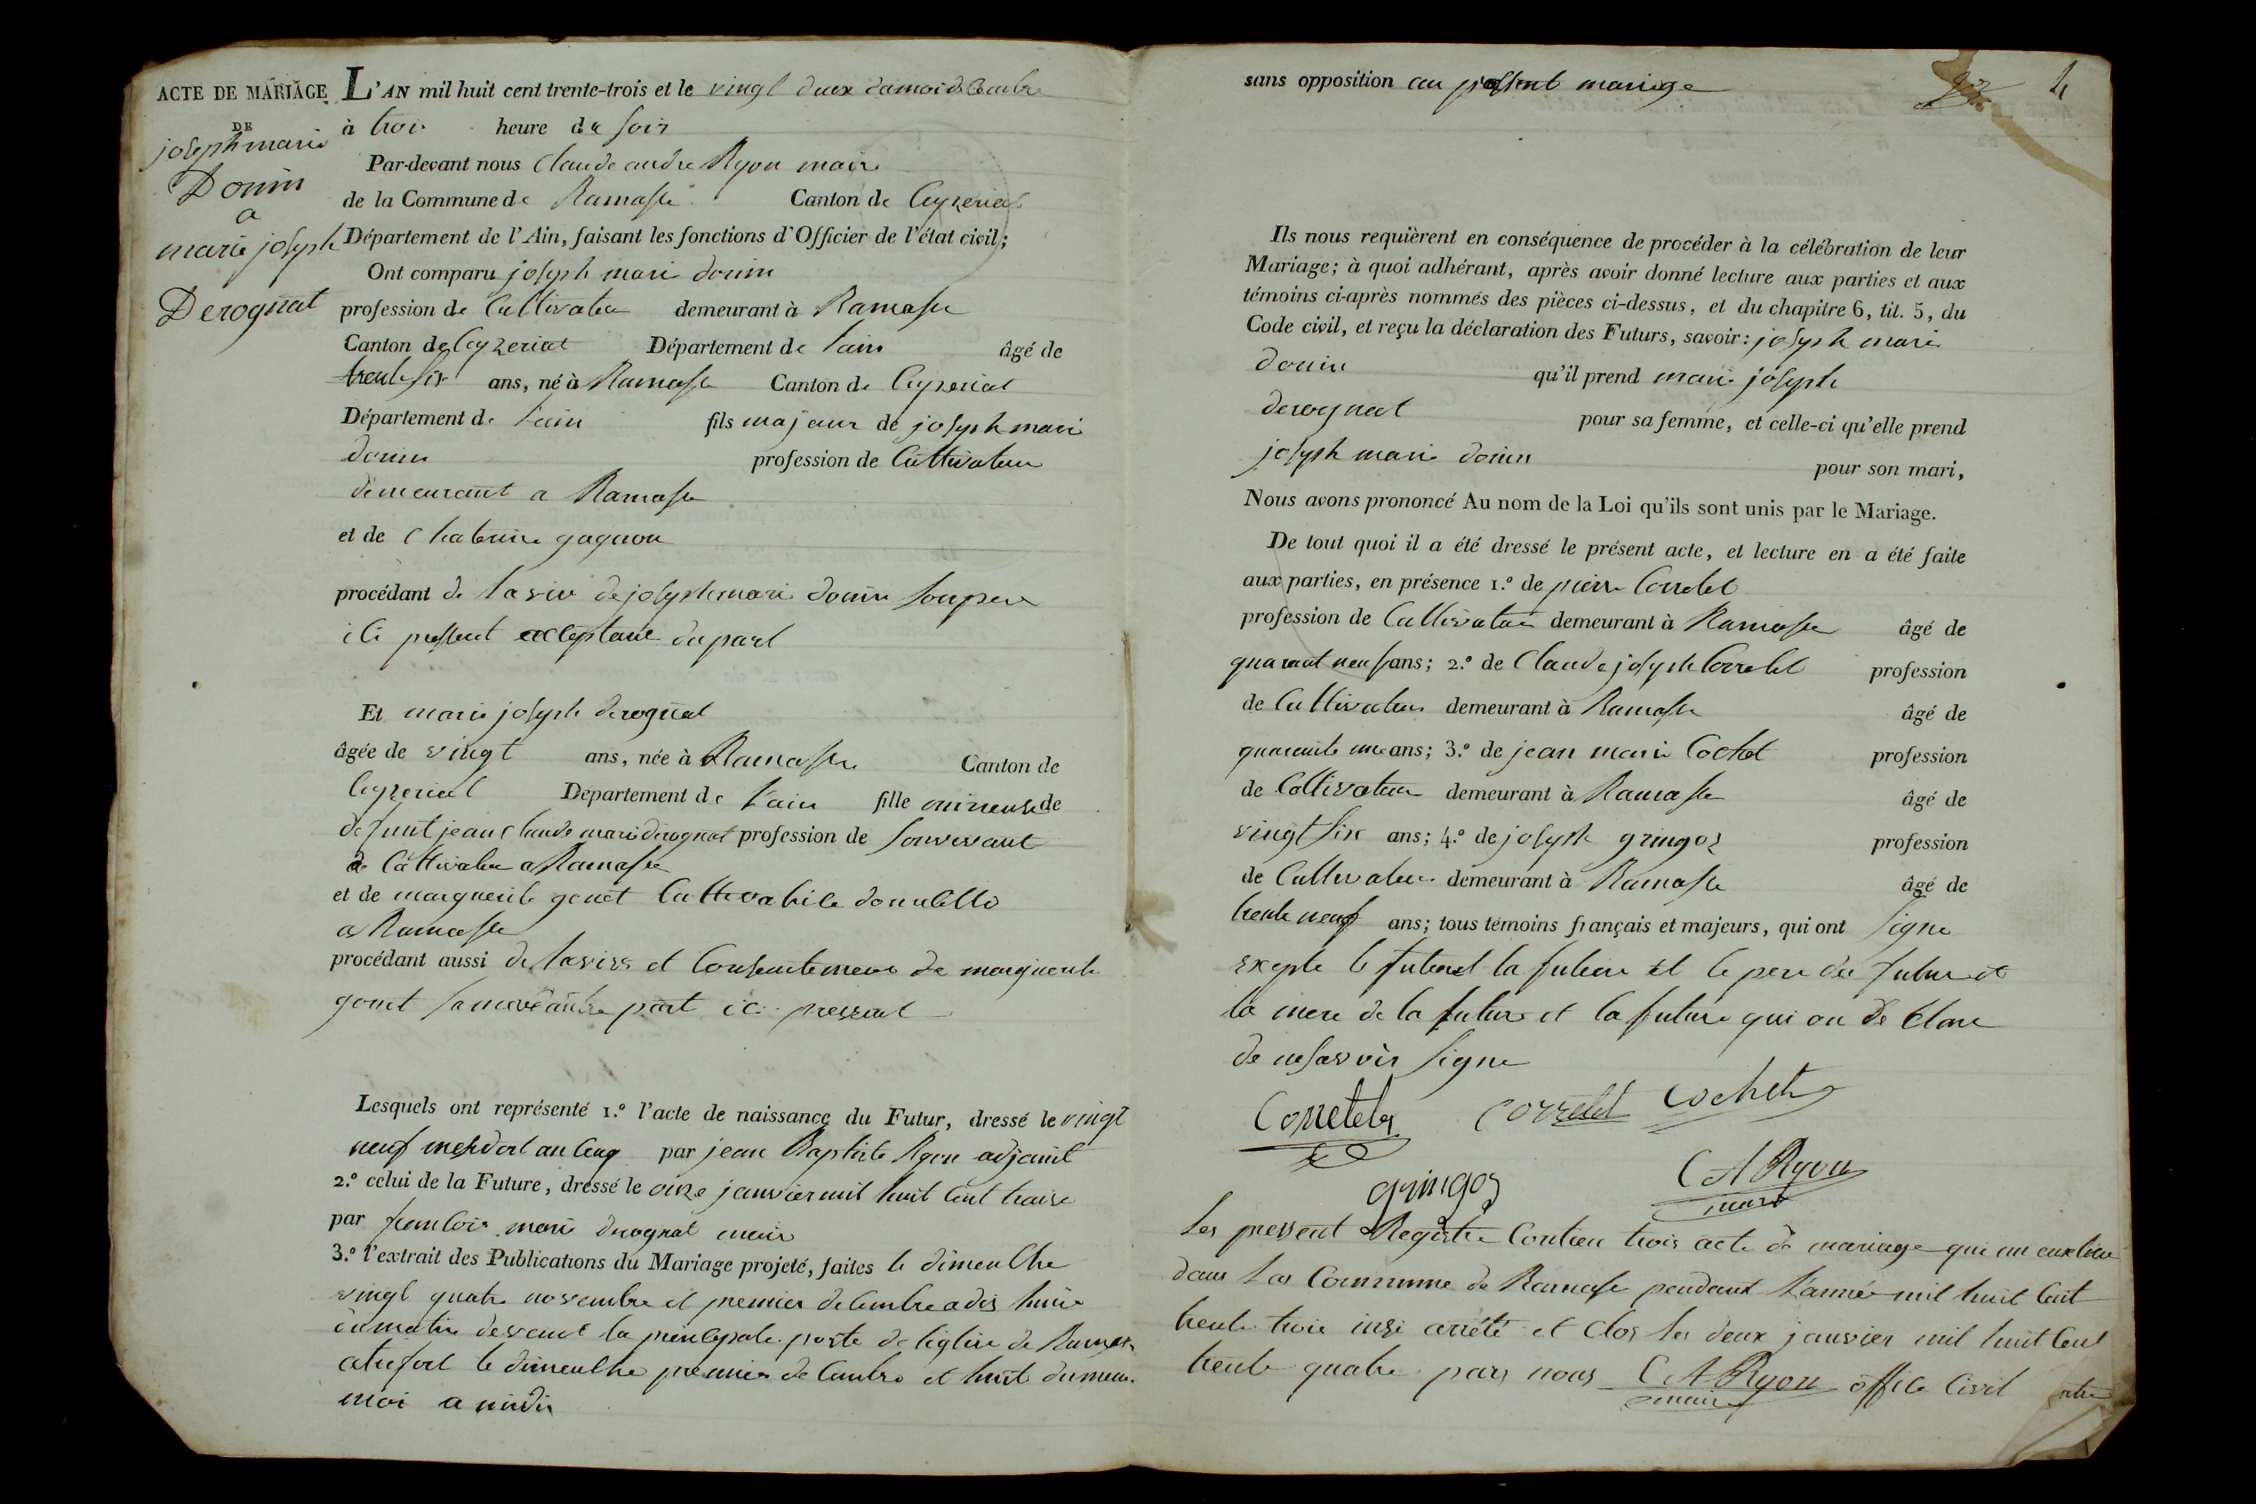 ACTE DE MARIAGE
DE
joseph marie
Donin
a
marie joseph
Derognat
L'AN mil huit cent trente-trois et le vingt deux du mois decembre
à trois heure du soir
Par-devant nous Claude andre Ryon maire
de la Commune de Ramasse Canton de Ceyzeriat
Département de l'Ain, faisant les fonctions d'Officier de l'état civil;
Ont comparu joseph marie donin
profession de Cultivateur demeurant à Ramasse
Canton de Ceyzeriat Département de lain âgé de
trente six ans, né à Ramasse Canton de Ceyzeriat
Département de lain fils majeur de joseph marie
donin profession de Cultivateur
demeurant a Ramasse
et de Chaterine gagnon
procédant de lavis de joseph marie donin son pere
ici present acceptant du part
Et marie joseph derognat
âgée de vingt ans, née à Ramasse Canton de
Ceyzeriat Departement de lain fille mineuse de
defunt jean Claude marie derognat profession de son vivant
de Cultivateur a Ramasse
et de marguerite gonet Cultivatrice domicillé
a Ramasse
procédant aussi de laviss et Consentement de marguerite
gonet sa mere autre part ici pressent
Lesquels ont représenté 1.º l'acte de naissance du Futur, dressé le vingt
neuf messidort an Cinq par jean Baptiste Ryon adjoint
2.º celui de la Future, dressé le onze janvier mil huit Cent traise
par francois marie derognat maire
3.º l'extrait des Publications du Mariage projeté, faites le dimenche
vingt quatre novembre et premier decembre a dis huire
du matin devent la principale porte de léglise de Ramasse
le dimenche premier decembre et huit du meme
moi a midis
sans opposition au present mariage
4
Ils nous requièrent en conséquence de procéder à la célébration de leur
Mariage; à quoi adhérant, après avoir donné lecture aux parties et aux
témoins ci-après nommés des pièces ci-dessus, et du chapitre 6, tit. 5, du
Code civil, et reçu la déclaration des Futurs, savoir: joseph marie
donin qu'il prend marie joseph
derognat pour sa femme, et celle-ci qu'elle prend
joseph marie donin pour son mari,
Nous avons prononcé Au nom de la Loi qu'ils sont unis par le Mariage.
De tout quoi il a été dressé le présent acte, et lecture en a été faite
aux parties, en présence 1.º de pierre Corretel
profession de Cultivateur demeurant à Ramasse âgé de
quarant neuf ans; 2.º de Claude joseph Corretel profession
de Cultivateur demeurant à Ramasse âgé de
quarante une ans; 3.º de jean marie Cochet profession
de Cultivateur demeurant à Ramasse âgé de
vingt six ans; 4.º de joseph gringoz profession
de Cultivateur demeurant à Ramasse âgé de
trente neuf ans; tous témoins français et majeurs, qui ont signe
exepte le futur et la future et le pere du futur et
la mere de la future et la future qui on de Clare
de ne savoir signe
Corretel Corretel cochet
gringoz C A Ryon
maire
Les pressent Registre Contien trois acte de mariage qui on eux lieu
dans la Commune de Ramasse pendant l'anné mil huit Cent
trente trois insi arrété et Clos les deux janvier mil huit Cent
trente quatre pars nous C A Ryon offile Civil
maire